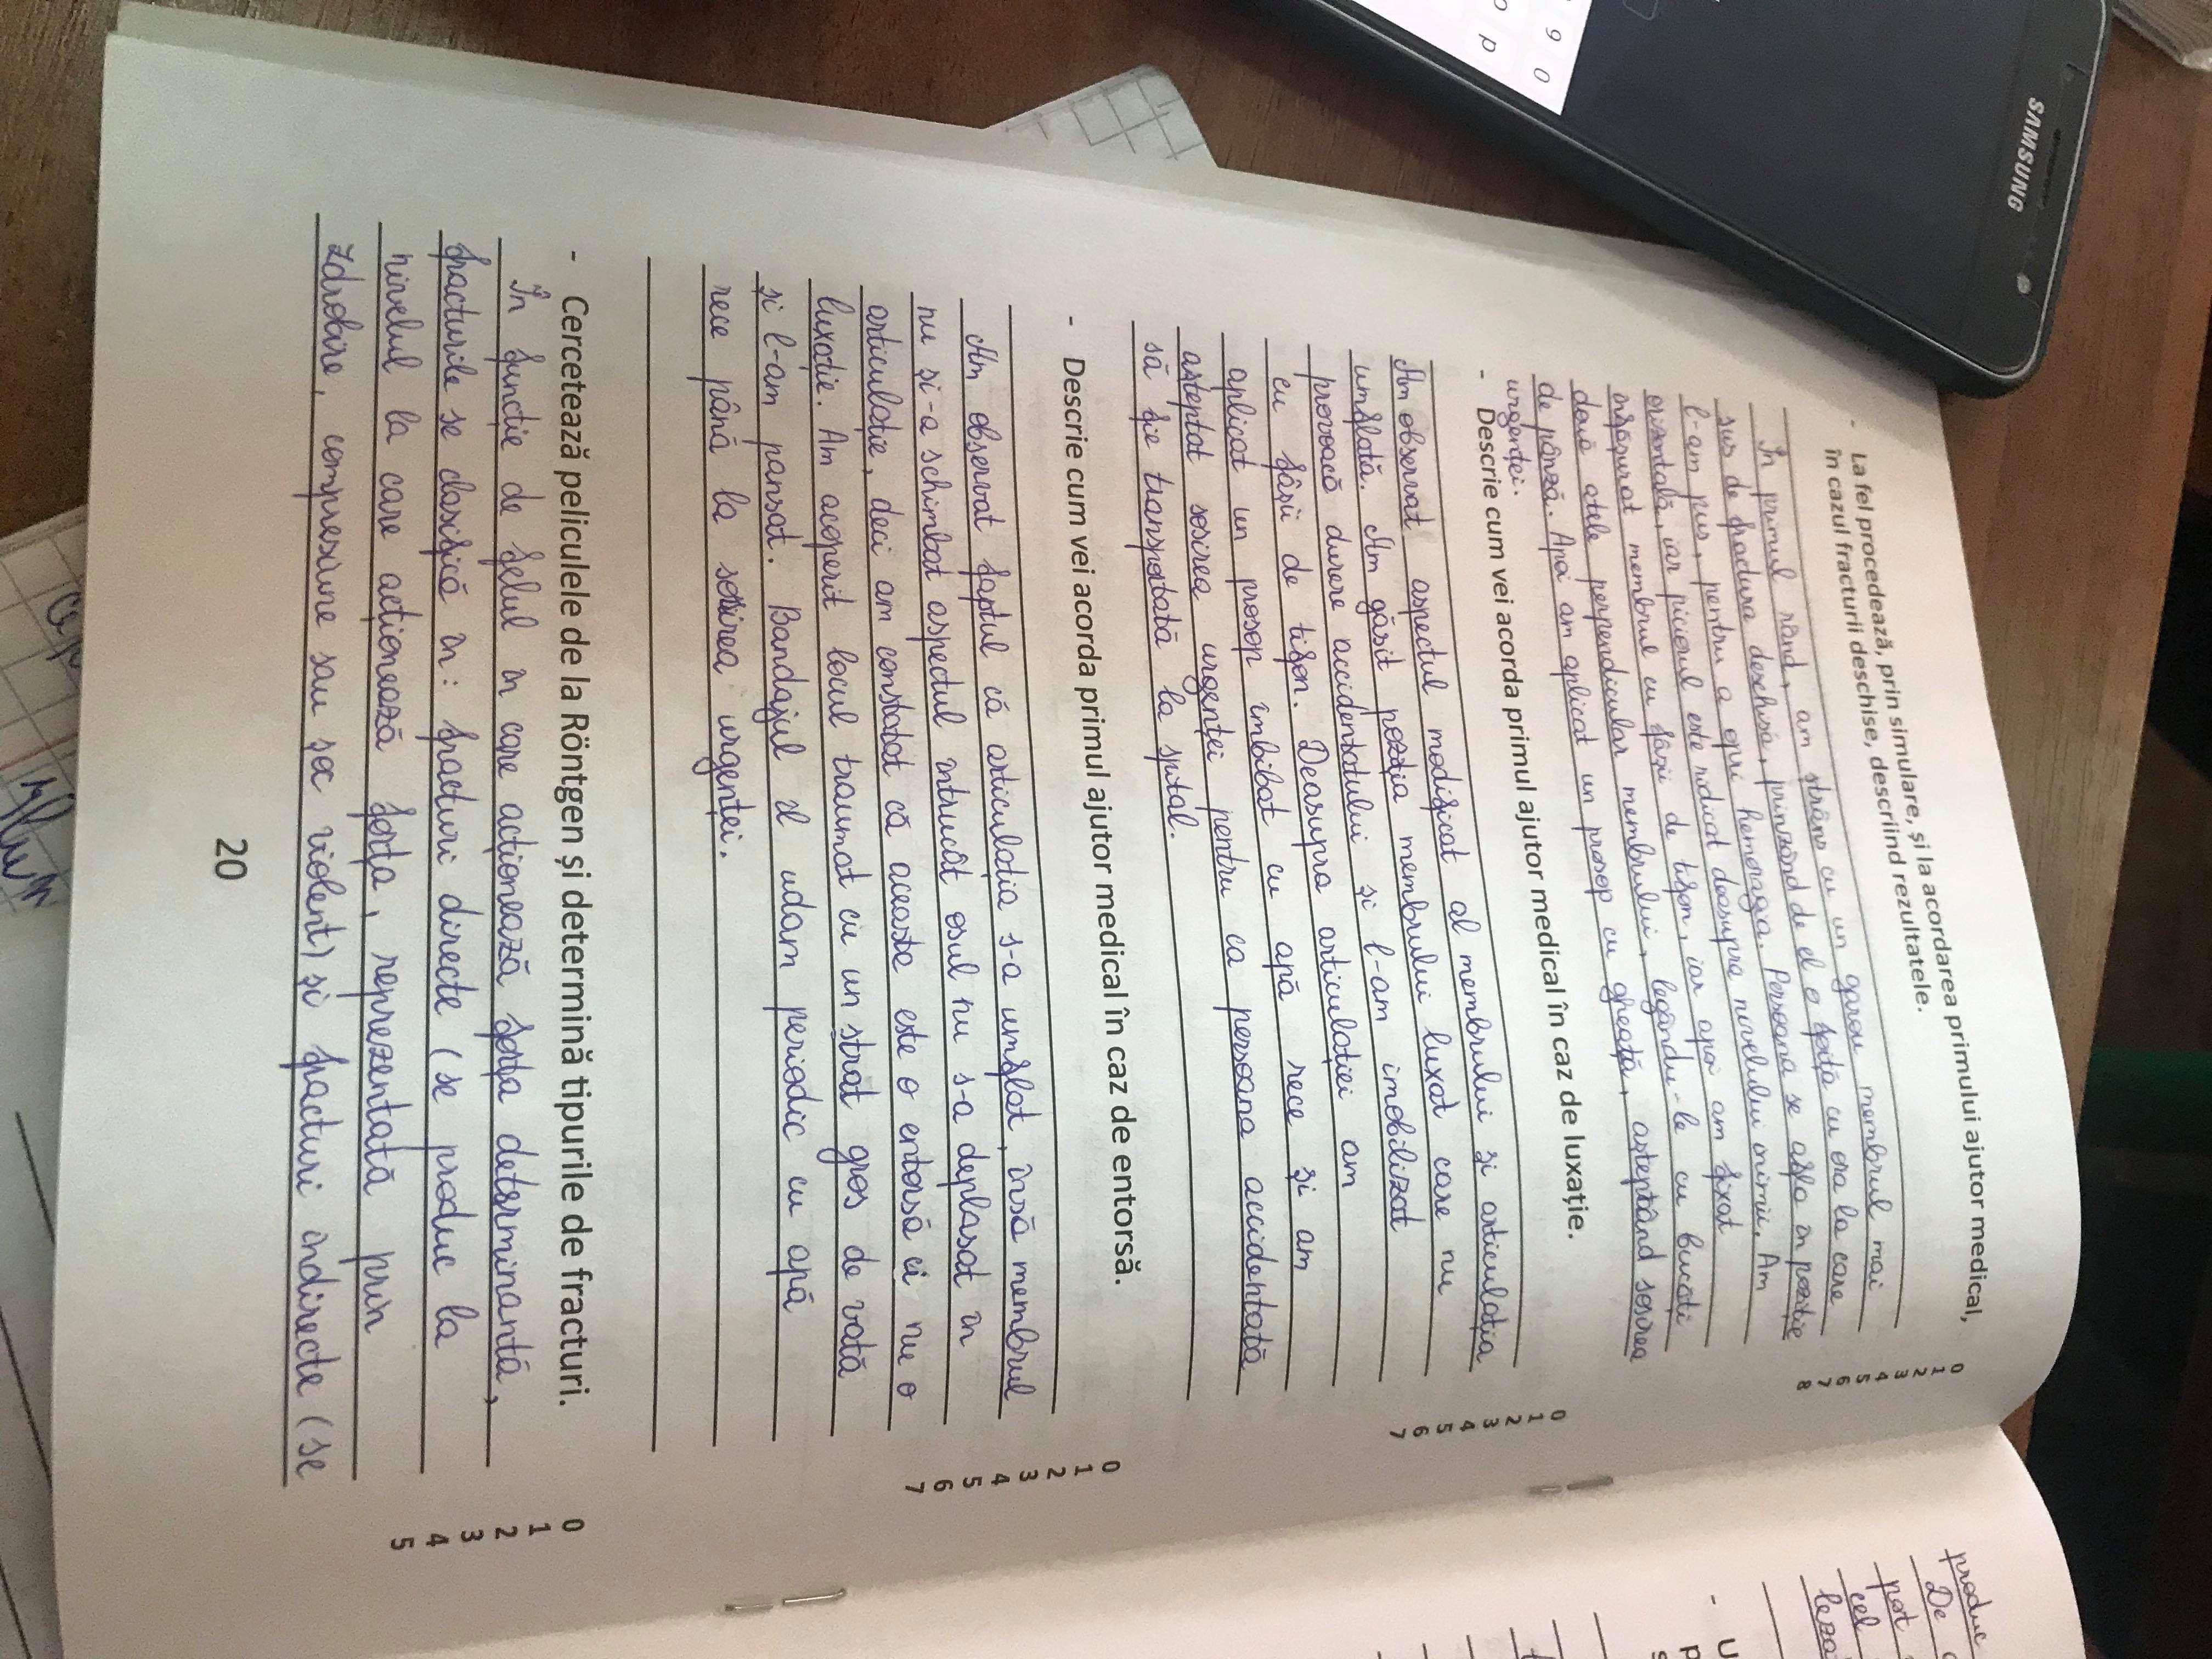 SAMSUNG
9 0
o p
- La fel procedează, prin simulare, și la acordarea primului ajutor medical,
în cazul fracturii deschise, descriind rezultatele.
0
1
2
3
4
5
6
7
8
În primul rând, am strâns cu un garou membrul mai
sus de fractura deschisă, prinzând de el o foiță cu ora la care
l-am pus, pentru a opri hemoragia. Persoana se afla în poziție
orizontală, iar piciorul este ridicat deasupra nivelului inimii. Am
înfășurat membrul cu fâșii de tifon, iar apoi am fixat
două atele perpendicular membrului, legându-le cu bucăți
de pânză. Apoi am aplicat un prosop cu gheață, așteptând sosirea
urgenței.
- Descrie cum vei acorda primul ajutor medical în caz de luxație.
0
1
2
3
4
5
6
7
Am observat aspectul modificat al membrului și articulația
umflată. Am găsit poziția membrului luxat care nu
provoacă durere accidentatului și l-am imobilizat
cu fâșii de tifon. Deasupra articulației am
aplicat un prosop îmbibat cu apă rece și am
așteptat sosirea urgenței pentru ca persoana accidentată
să fie transportată la spital.
- Descrie cum vei acorda primul ajutor medical în caz de entorsă.
0
1
2
3
4
5
6
7
Am observat faptul că articulația s-a umflat, însă membrul
nu și-a schimbat aspectul întrucât osul nu s-a deplasat în
articulație, deci am constatat că aceasta este o entorsă ci nu o
luxație. Am acoperit locul traumat cu un strat gros de vată
și l-am pansat. Bandajul îl udam periodic cu apă
rece până la sosirea urgenței.
- Cercetează peliculele de la Röntgen și determină tipurile de fracturi.
0
1
2
3
4
5
În funcție de felul în care acționează forța determinantă,
fracturile se clasifică în: fracturi directe (se produc la
nivelul la care acționează forța, reprezentată prin
zdrobire, compresiune sau șoc violent) și fracturi indirecte (se
20
produc
De
pot
cel